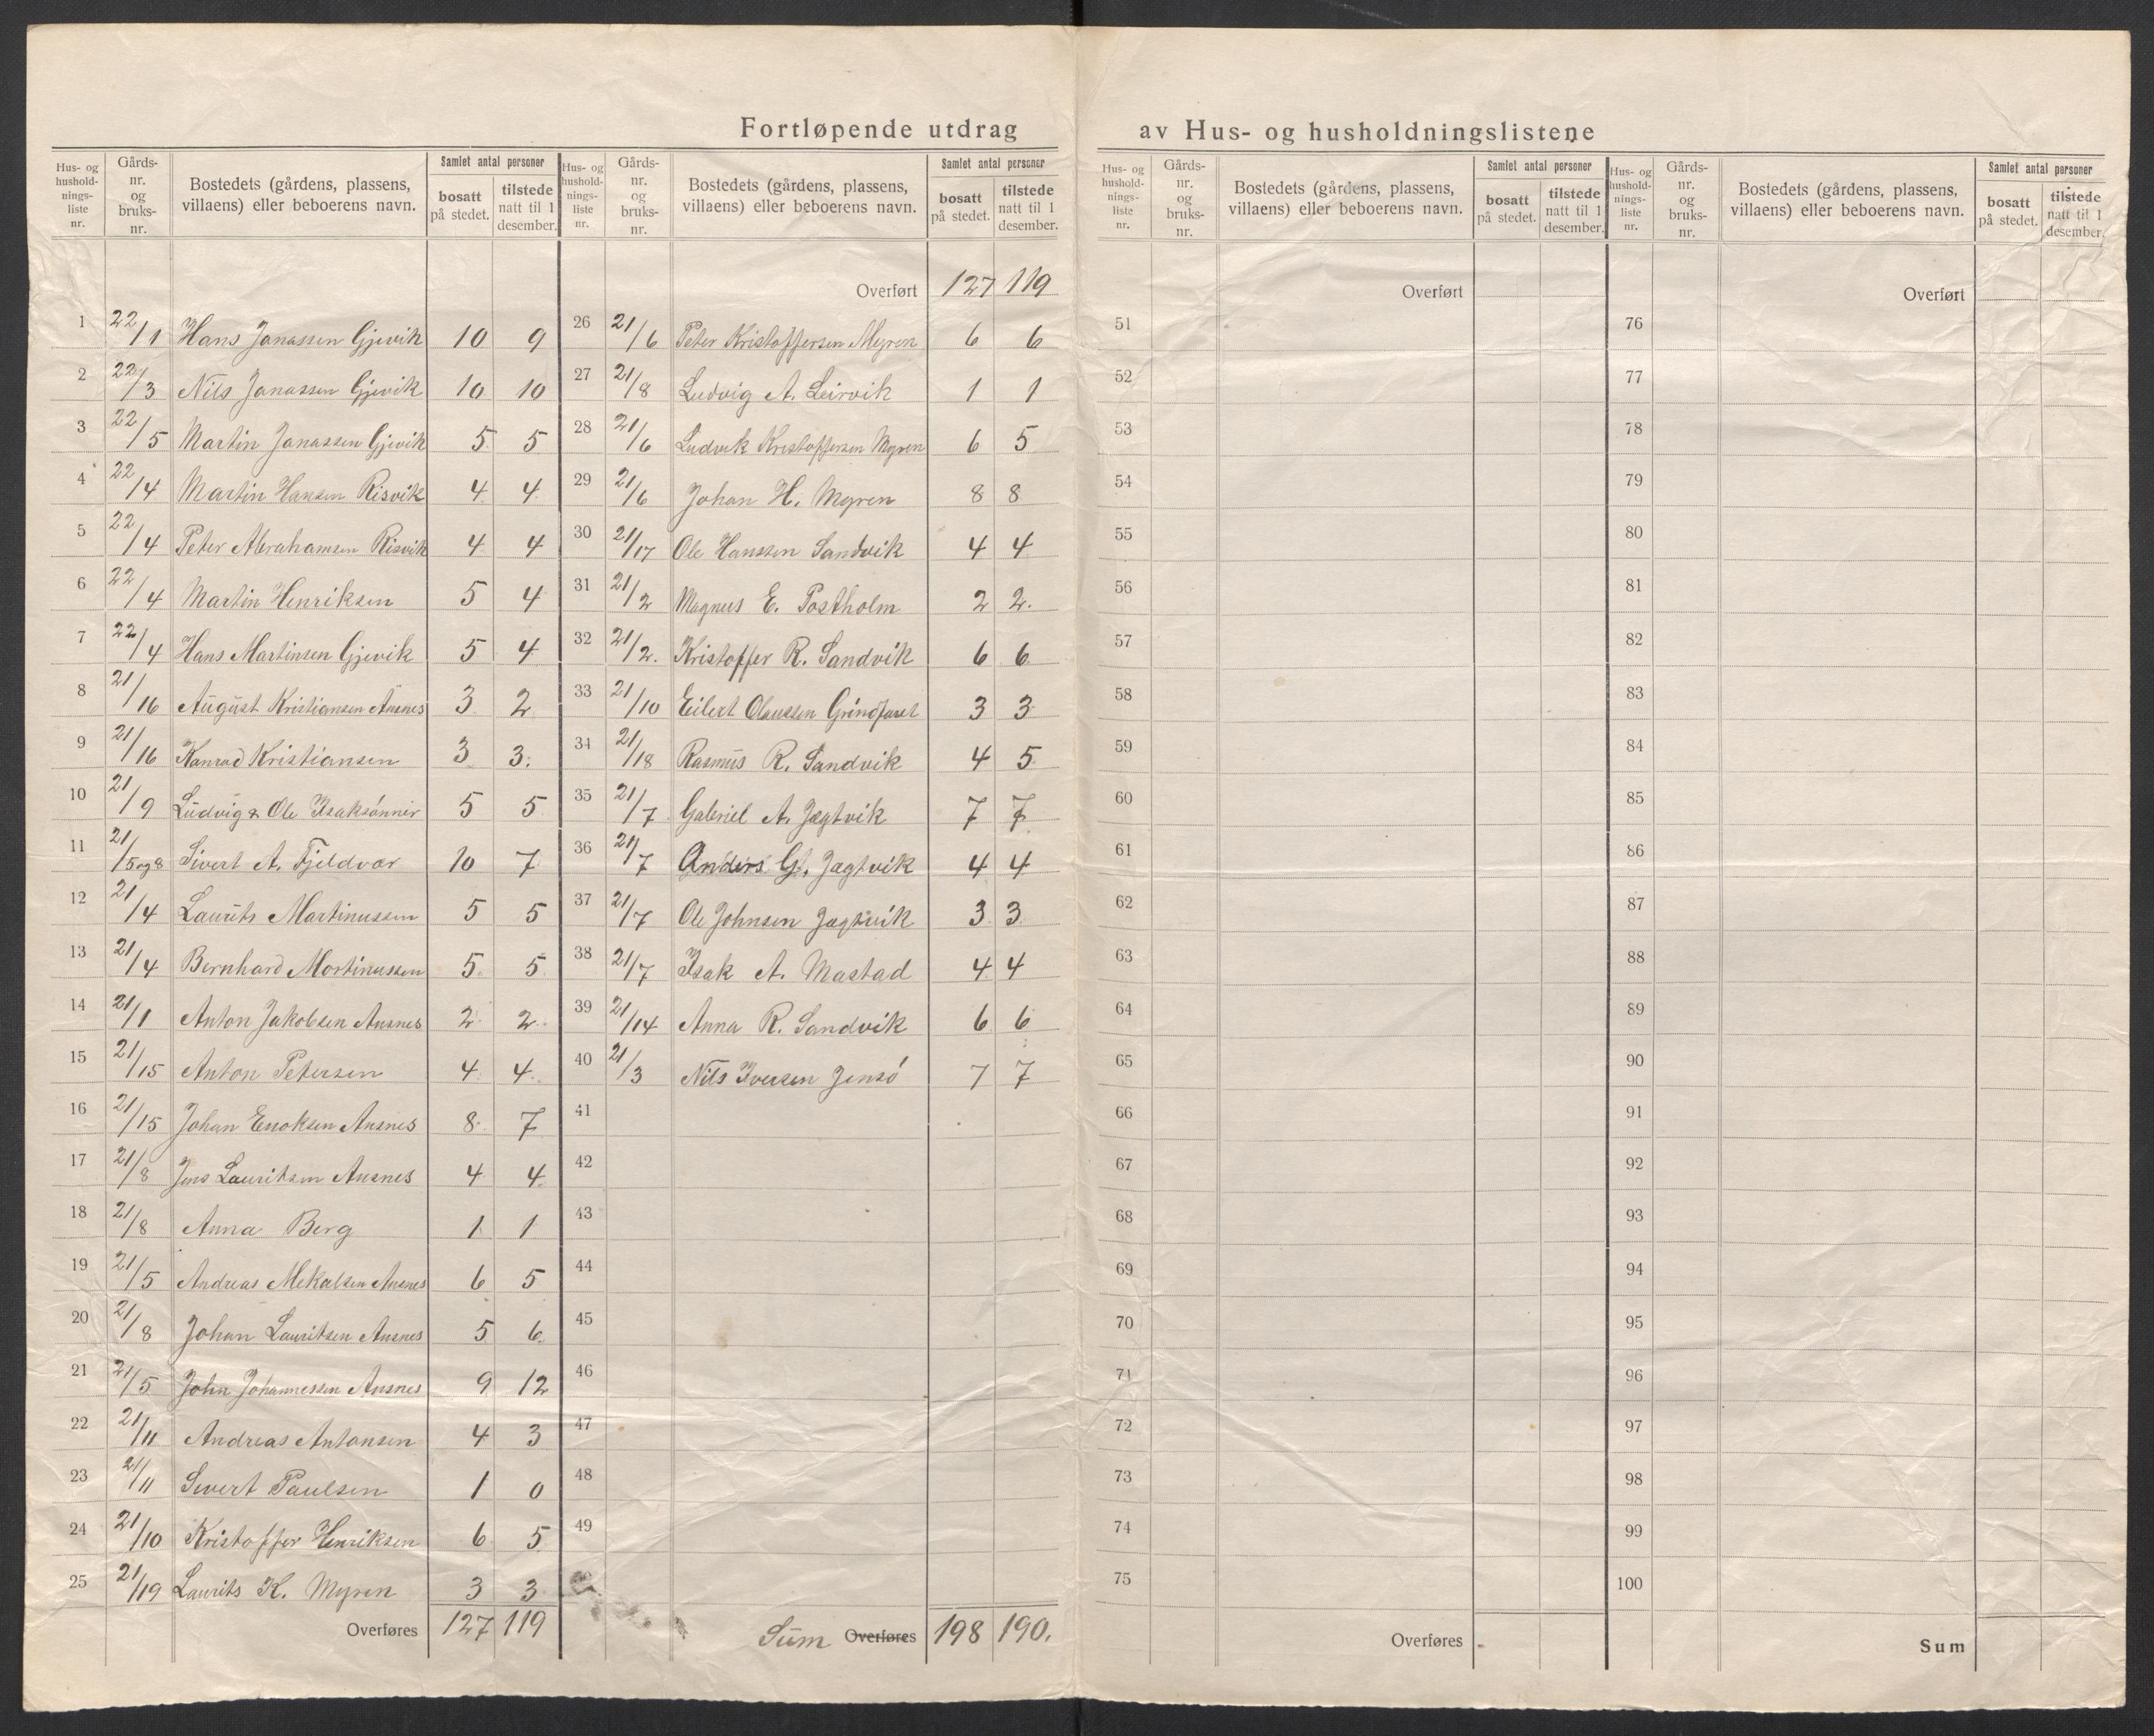 Fortløpende utdrag av Hus- og husholdningslistene
Hus- og hushold-nings-liste nr. | Gårds-nr. og bruks-nr. | Bostedets (gårdens, plassens, villaens) eller beboerens navn. | Samlet antal personer | bosatt på stedet. | tilstede natt til 1 desember.
1 22/1 Hans Janassen Gjevik 10 9
2 22/3 Nils Janassen Gjevik 10 10
3 22/5 Martin Janassen Gjevik 5 5
4 22/4 Martin Hansen Risvik 4 4
5 22/4 Peter Abrahamsen Risvik 4 4
6 22/4 Martin Henriksen 5 4
7 22/4 Hans Martinsen Gjevik 5 4
8 21/16 August Kristiansen Ausnes 3 2
9 21/16 Konrad Kristiansen 3 3.
10 21/9 Ludvig & Ole Isaksønner 5 5
11 21/5og8 Sivert A. Fjeldvær 10 7
12 21/4 Laurits Martinussen 5 5
13 21/4 Bernhard Mortinussen 5 5
14 21/1 Anton Jakobsen Ausnes 2 2
15 21/15 Anton Petersen 4 4
16 21/15 Johan Enoksen Ausnes 8 7
17 21/8 Jens Lauritsen Ausnes 4 4
18 21/8 Anna Berg 1 1
19 21/5 Andreas Mekalsen Ausnes 6 5
20 21/8 Johan Lauritsen Ausnes 5 6
21 21/5 John Johannessen Ausnes 9 12
22 21/11 Andreas Antonsen 4 3
23 21/11 Sivert Paulsen 1 0
24 21/10 Kristoffer Henriksen 6 5
25 21/19 Laurits K. Myren 3 3
Overføres 127 119
Hus- og hushold-nings-liste nr. | Gårds-nr. og bruks-nr. | Bostedets (gårdens, plassens, villaens) eller beboerens navn. | Samlet antal personer | bosatt på stedet. | tilstede natt til 1 desember.
Overført 127 119
26 21/6 Peter Kristoffersen Myren 6 6
27 21/8 Ludvig A. Leirvik 1 1
28 21/6 Ludvik Kristoffersen Myren 6 5
29 21/6 Johan H. Myren 8 8
30 21/17 Ole Hanssen Sandvik 4 4
31 21/2 Magnus E. Postholm 2 2.
32 21/2. Kristoffer R. Sandvik 6 6
33 21/10 Eilert Olaussen Grindfaret 3 3
34 21/18 Rasmus R. Sandvik 4 5
35 21/7 Gabriel A. Jægtvik 7 7
36 21/7 Anders G. Jægtvik 4 4
37 21/7 Ole Johnsen Jægtvik 3 3
38 21/7 Isak A. Mastad 4 4
39 21/14 Anna R. Sandvik 6 6
40 21/3 Nils Iversen Jensø 7 7
41
42
43
44
45
46
47
48
49
Sum Overføres 198 190.
Hus- og hushold-nings-liste nr. | Gårds-nr. og bruks-nr. | Bostedets (gårdens, plassens, villaens) eller beboerens navn. | Samlet antal personer | bosatt på stedet. | tilstede natt til 1 desember.
Overført
51
52
53
54
55
56
57
58
59
60
61
62
63
64
65
66
67
68
69
70
71
72
73
74
75
Overføres
Hus- og hushold-nings-liste nr. | Gårds-nr. og bruks-nr. | Bostedets (gårdens, plassens, villaens) eller beboerens navn. | Samlet antal personer | bosatt på stedet. | tilstede natt til 1 desember.
Overført
76
77
78
79
80
81
82
83
84
85
86
87
88
89
90
91
92
93
94
95
96
97
98
99
100
Sum